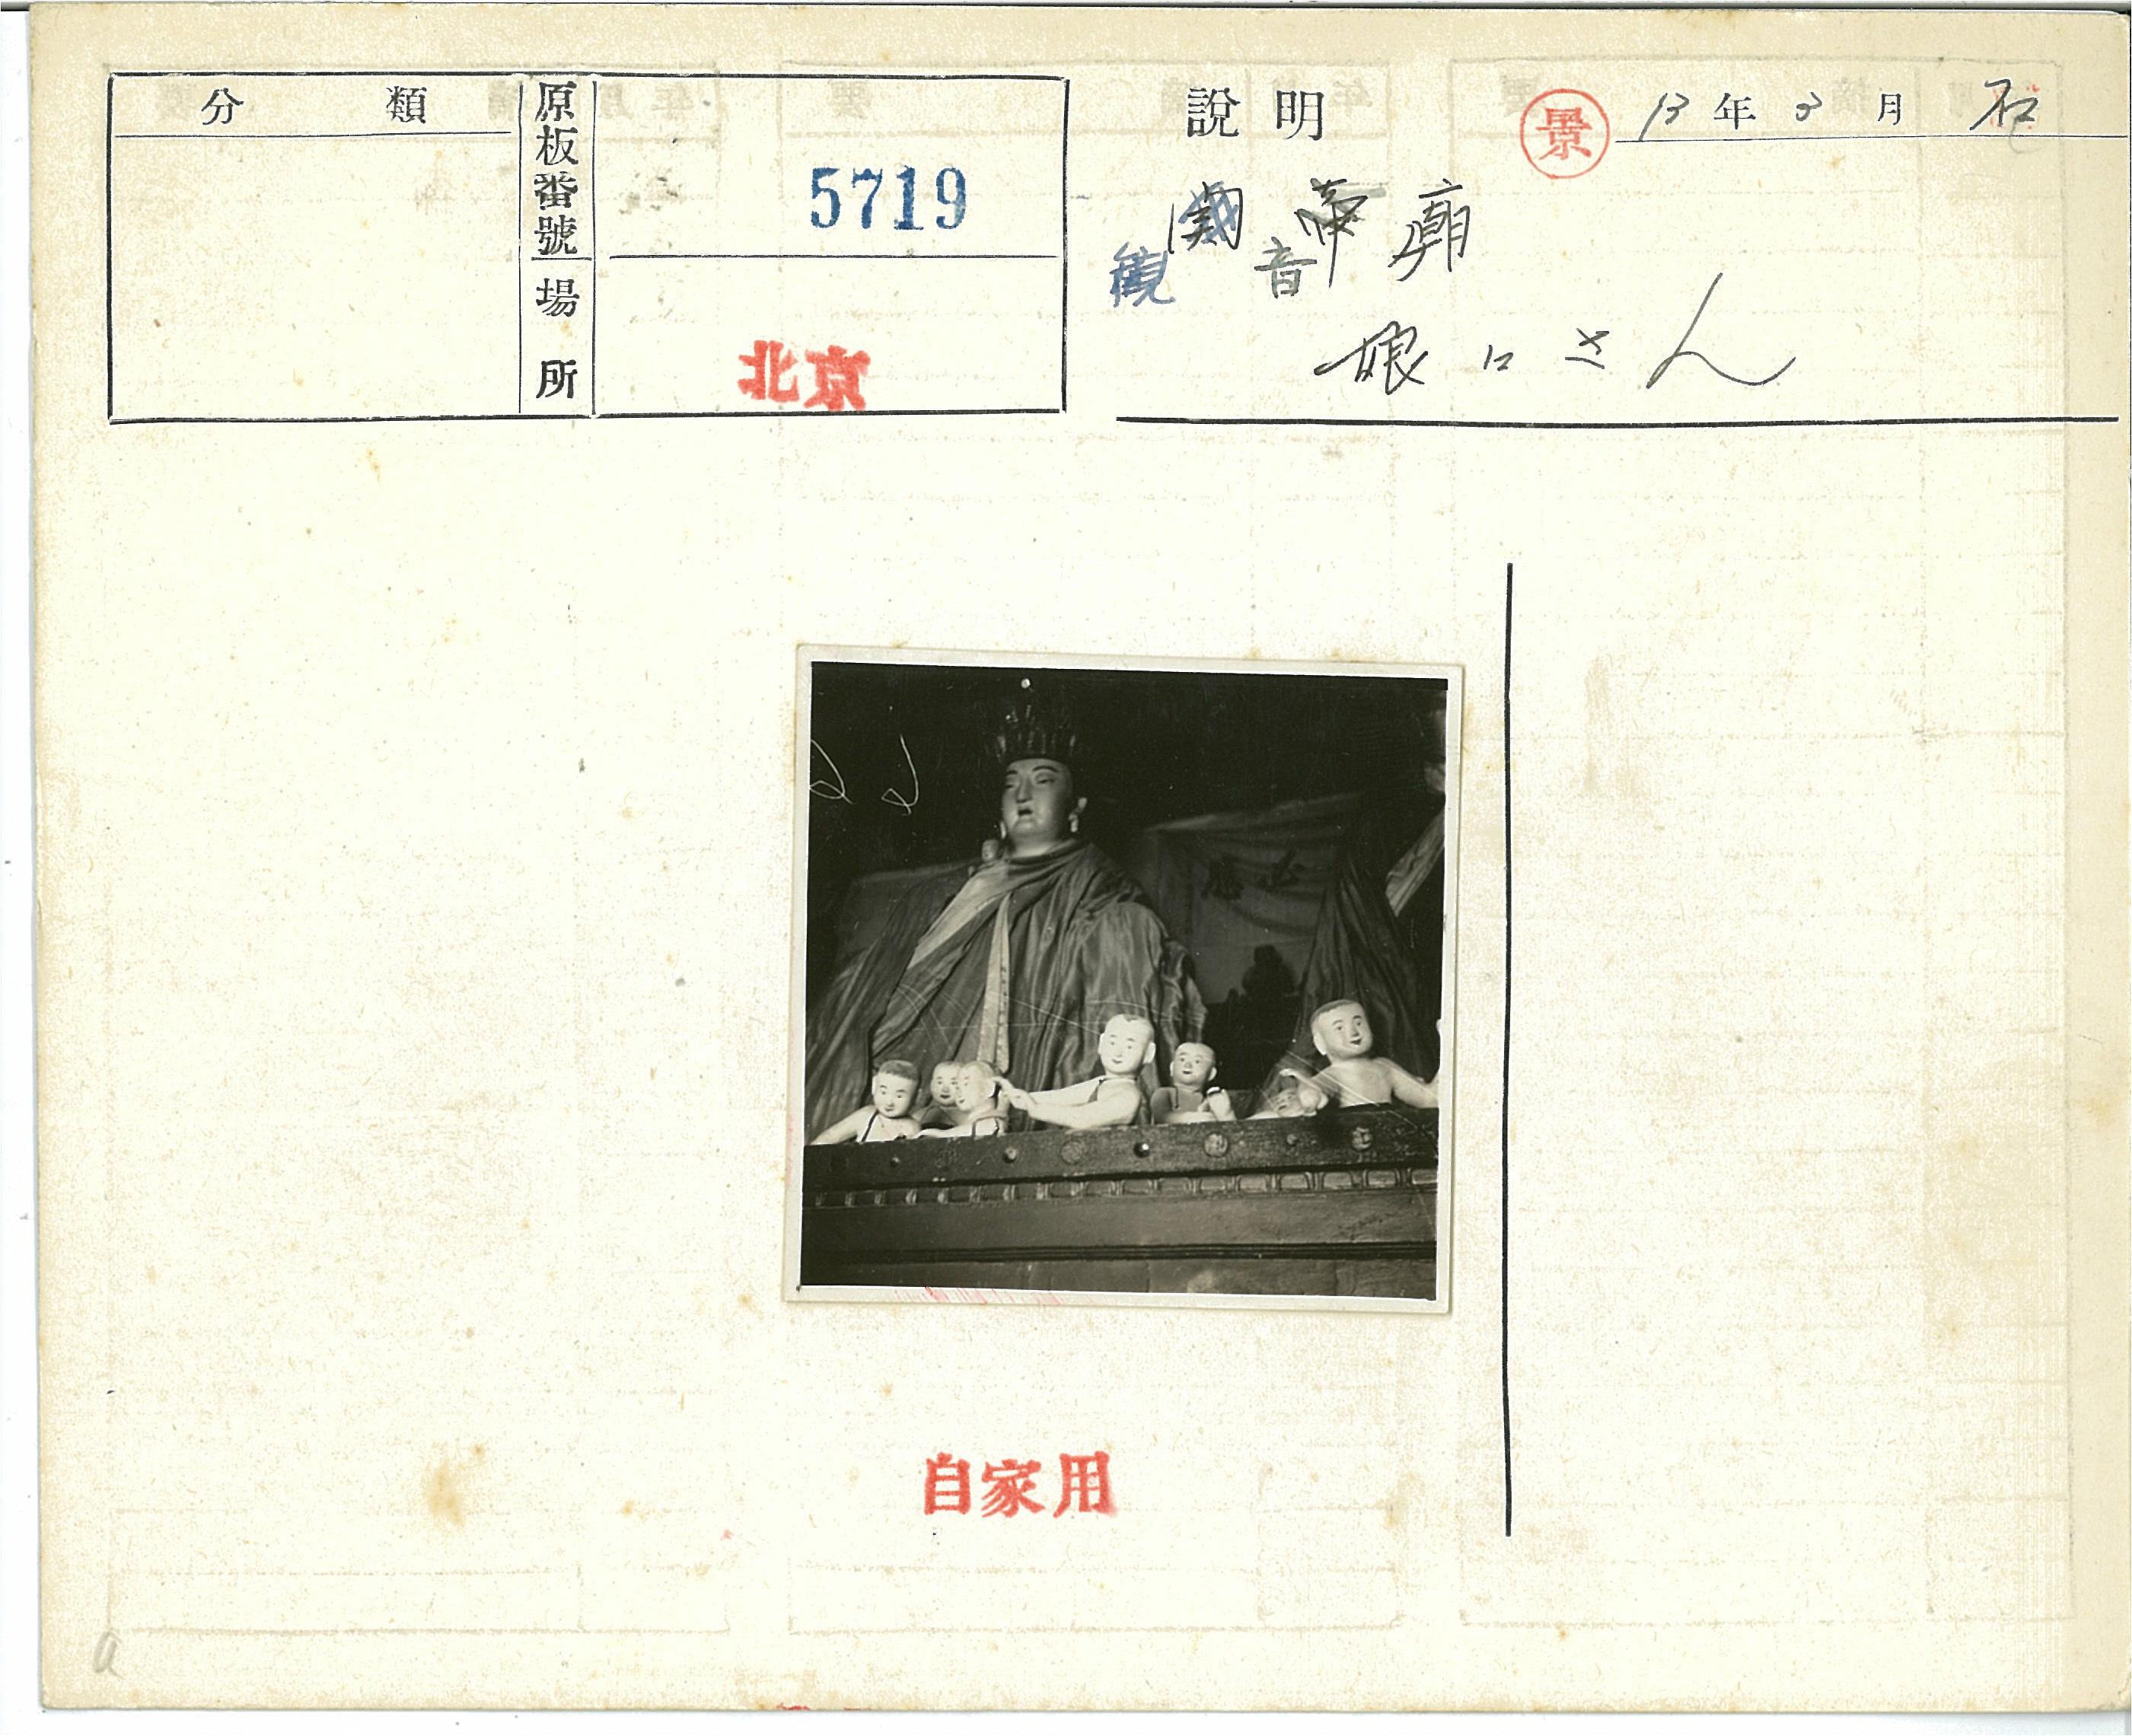 分類
原板番號
5719
場所
北京
説明
景
13年3月 石
関帝廟
観音
娘々さん
自家用
a